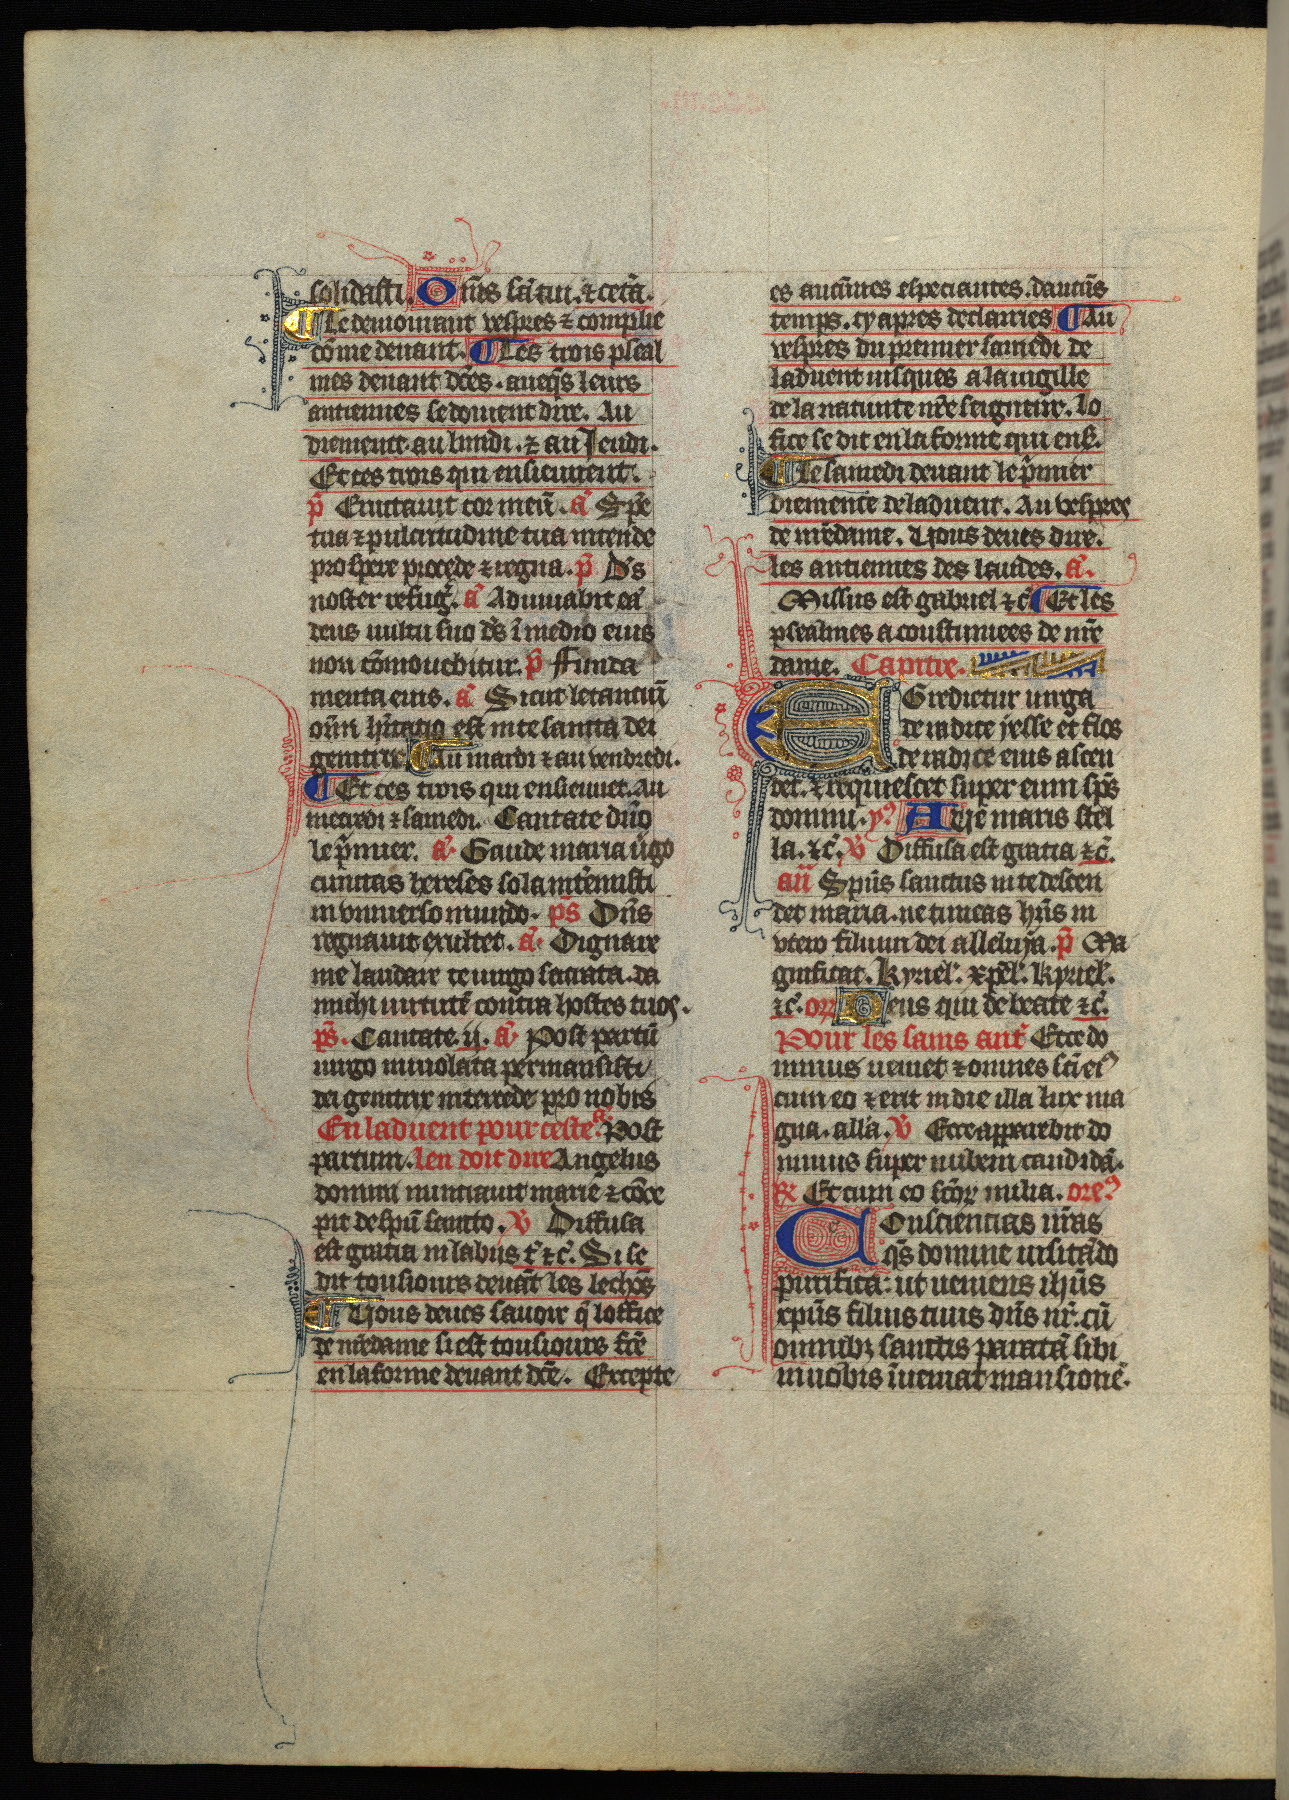 solidasti. Om̄s sc̄i tui. ⁊ cetā.
Le demourant vespres ⁊ complie
cōme deuant. Les trois pseal
mes deuant dc̄es. auecq̄s leurs
antiennes se doiuent dire. Au
diemence au lundi. ⁊ au Jeudi.
Et ces trois qui ensieuuent.
p̄ Eructauit cor meū. a᷑ Spē
tua ⁊ pulcritudine tua intende
prospere procede ⁊ regna. p̄ Ds̄
noster refug᷑. a᷑ Adiuuabit eā
deus uultu suo ds̄ ī medio eius
non cōmouebitur. p̄ Funda
menta eius. a᷑ Sicut letantiū
oīm hītatio est in te sancta dei
genitrix Au mardi et au vendredi.
Et ces trois qui ensieuuēt. Au
mecredi ⁊ samedi. Cantate dn̄o
le p̄mier. a᷑ Gaude maria v̄go
cunctas hereses sola intēmisti
in vniuerso mundo. ps̄ Dn̄s
regnauit exultet. a᷑ Dignare
me laudare te uirgo sacrata. da
michi uirtutē contra hostes tuos.
ps̄. Cantate. ij. a᷑ Post partū
uirgo inuiolata permansisti
dei genitrix intercede pro nobis
En laduent pour ceste a᷑ Post
partum. len doit dire Angelus
domini nuntiauit marie ⁊ cōce
pit de spū sancto. ꝟ Diffusa
est gratia in labiis t̄ ⁊c̄. Si se
dit tousiours deuāt les lechōs
Vous deues sauoir q̄ loffice
de nrēdame si est tousiours fc̄e
en la forme deuant dc̄e. Excepte
es aucūnes especiautes. daucūs
temps. cy apres declairies Au
vespres du premier samedi de
laduent iusques a la uigille
de la natiuite nrē seigneur. Lo
fice se dit en la forme qui ens̄.
Le samedi deuant le p̄mier
diemence de laduent. Au vespres
de nrēdame. Vous deues dire.
les antiennes des laudes. a᷑.
Missus est gabriel ⁊c̄ Et les
psealmes acoustumees de nrē
dame. Capitre.
Egredietur uirga
de radice jesse et flos
de radice eius ascen
det. ⁊ requiescet super eum sps̄
domini. y? Aue maris stel
la. ⁊c̄. ꝟ Diffusa est gratia ⁊c̄.
an̄ Spūs sanctus in te descen
det maria. ne timeas hn̄s in
vtero filium dei alleluya. p̄ Ma
gnificat. Kyriel᷑. xp̄el᷑. Kyriel᷑.
⁊c̄. or̄ Deus qui de beate ⁊c̄.
Pour les sains ant̄ Ecce do
minus ueniet ⁊ omnes sc̄i eiꝰ
cum eo ⁊ erit in die illa lux ma
gna. all̄a. ꝟ Ecce apparebit do
minus super nubem candidā.
℟ Et cum eo sc̄oꝝ milia. oreꝰ
Conscientias nr̄as
qs̄ domine uisitādo
purifica: ut ueniens ihūs
xpūs filius tuus dn̄s nr̄. cū
omnibꝫ sanctis paratā sibi
in nobis īueniat mansionē.